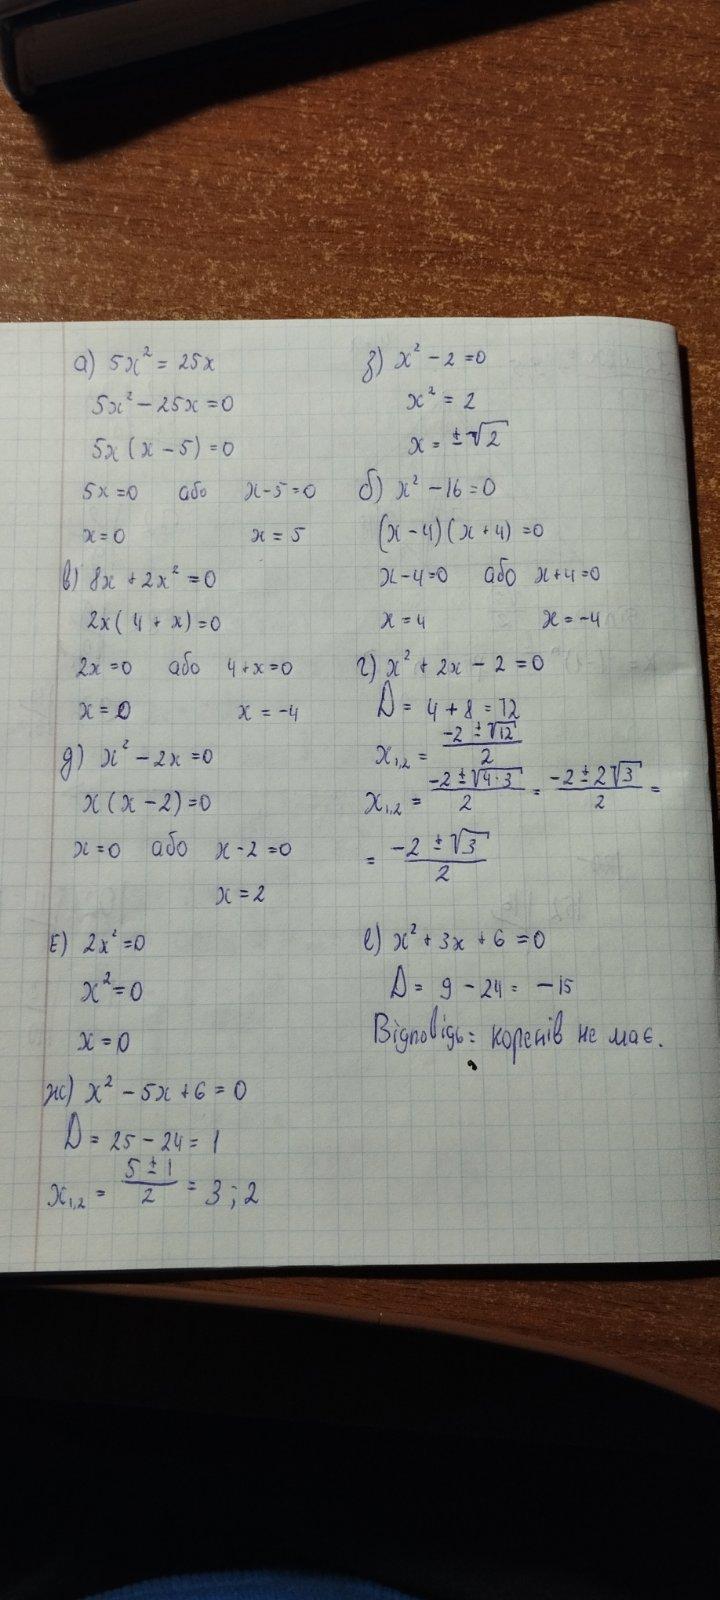 а) 5x² = 25x
5x² - 25x = 0
5x (x - 5) = 0
5x = 0 або x - 5 = 0
x = 0 x = 5
в) 8x + 2x² = 0
2x ( 4 + x) = 0
2x = 0 або 4 + x = 0
x = 0 x = -4
д) x² - 2x = 0
x (x - 2) = 0
x = 0 або x - 2 = 0
x = 2
Е) 2x² = 0
x² = 0
x = 0
ж) x² - 5x + 6 = 0
D = 25 - 24 = 1
x₁,₂ = (5 ± 1)/2 = 3 ; 2
з) x² - 2 = 0
x² = 2
x = ±√2
б) x² - 16 = 0
(x - 4) (x + 4) = 0
x - 4 = 0 або x + 4 = 0
x = 4 x = -4
г) x² + 2x - 2 = 0
D = 4 + 8 = 12
x₁,₂ = (-2 ± √12)/2
x₁,₂ = (-2 ± √4·3)/2 = (-2 ± 2√3)/2 =
= (-2 ± √3)/2
е) x² + 3x + 6 = 0
D = 9 - 24 = -15
Відповідь: коренів не має.